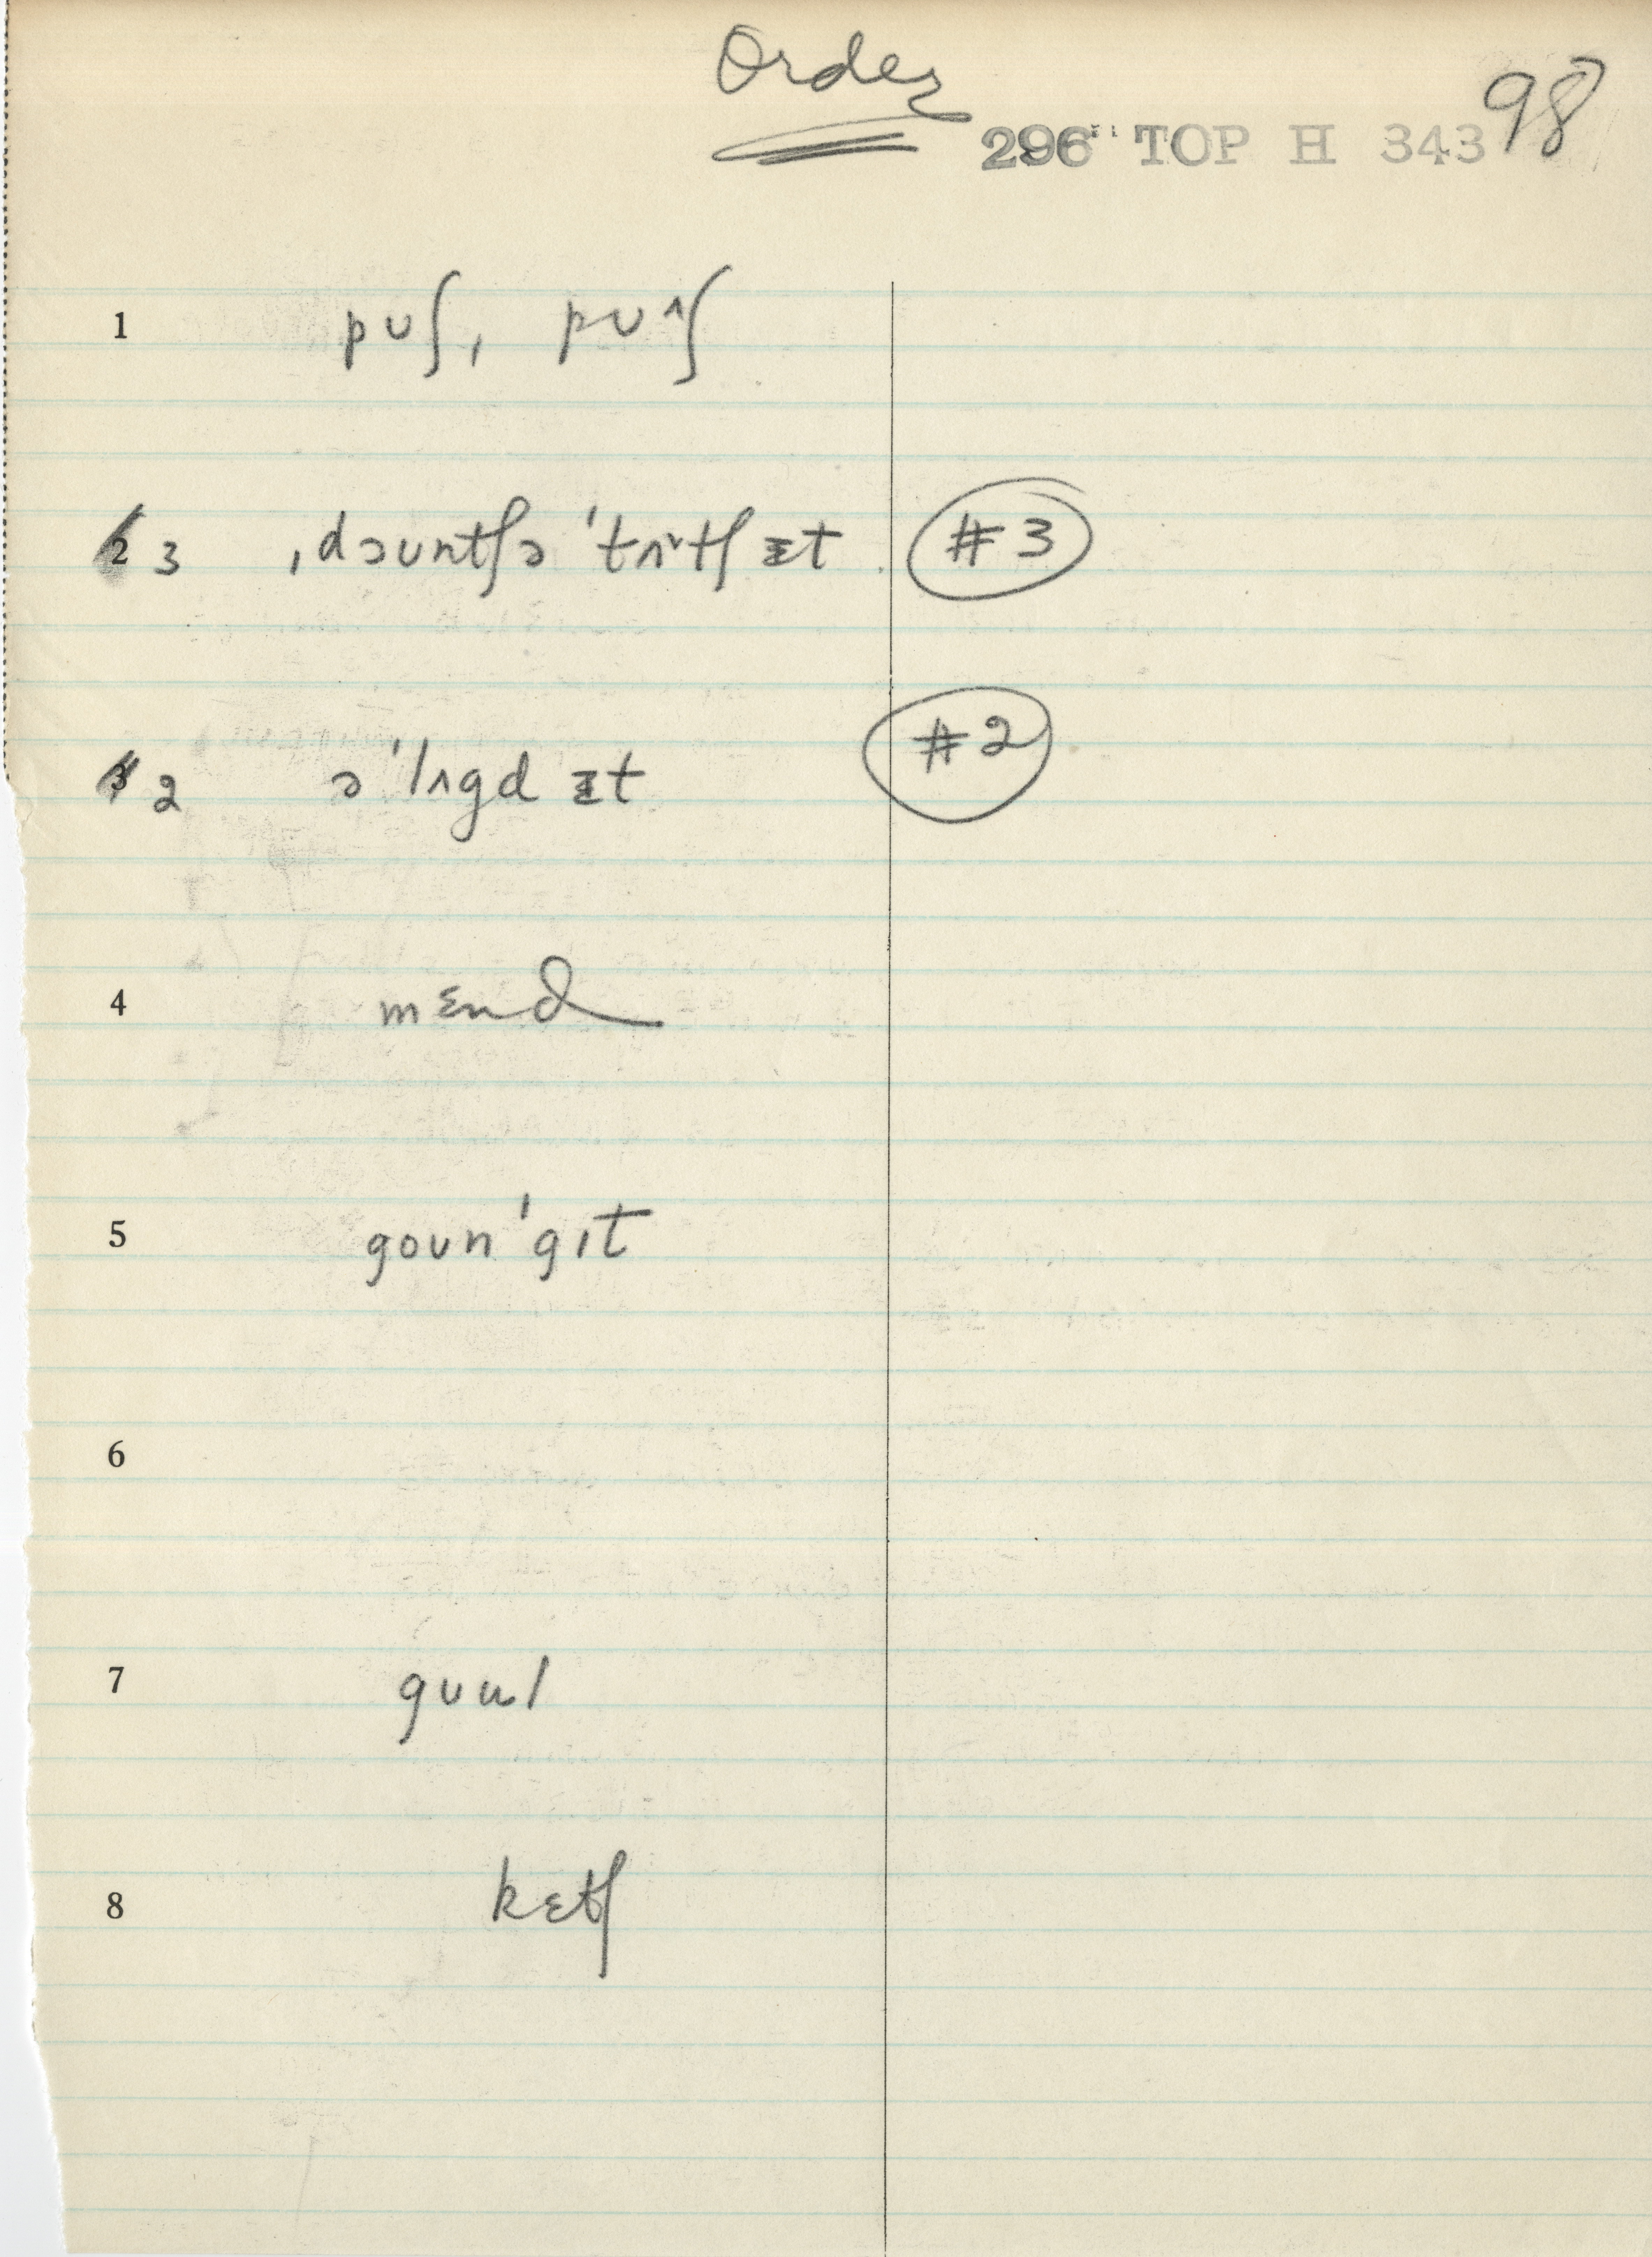 Order
296 TOP H 343 98
1 pʊʃ, pʊ^ʃ
2 3 ˌdəʊntʃə ˈtʌ˅tʃ ɪt #3
3 2 ə ˈlʌgd ɪt #2
4 mɛnd
5 goʊn ˈgɪt
6
7 gʊɯl
8 kɛtʃ